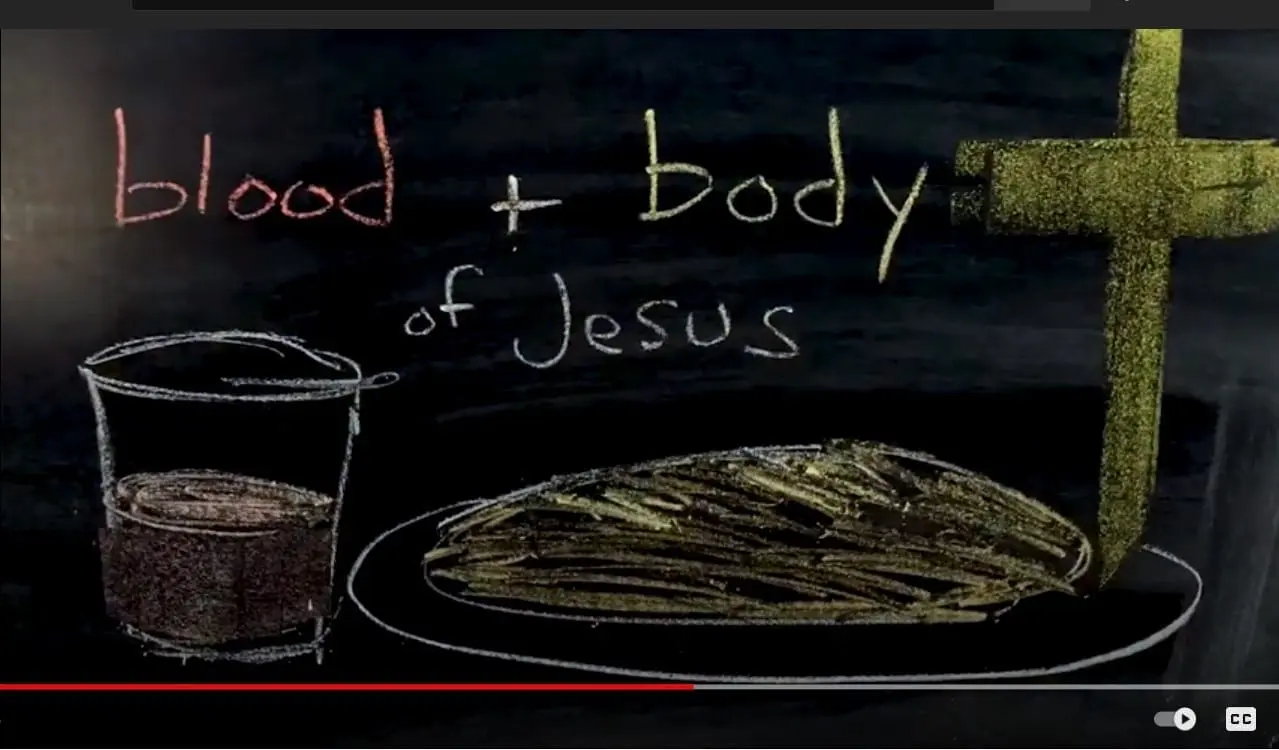 blood + body
of Jesus
CC